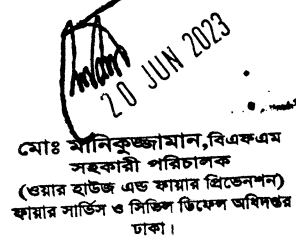 20 JUN 2023
মোঃ মানিকুজ্জামান,বিএফএম
সহকারী পরিচালক
(ওয়ার হাউজ এন্ড ফায়ার প্রিভেনশন)
ফায়ার সার্ভিস ও সিভিল ডিফেন্স অধিদপ্তর
ঢাকা।